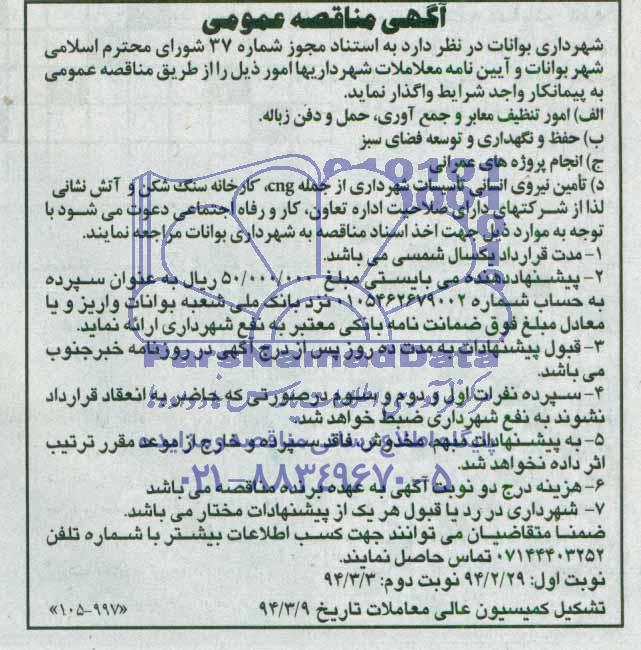 آگهی مناقصه عمومی
شهرداری بوانات در نظر دارد به استناد مجوز شماره ۳۷ شورای محترم اسلامی
شهر بوانات و آیین نامه معلاملات شهرداریها امور ذیل را از طریق مناقصه عمومی
به پیمانکار واجد شرایط واگذار نماید.
الف) امور تنظیف معابر و جمع آوری، حمل و دفن زباله.
ب) حفظ و نگهداری و توسعه فضای سبز
ج) انجام پروژه های عمرانی
د) تأمین نیروی انسانی تأسیسات شهرداری از جمله cng، کارخانه سنگ شکن و آتش نشانی
لذا از شرکتهای دارای صلاحیت اداره تعاون، کار و رفاه اجتماعی دعوت می شود با
توجه به موارد ذیل جهت اخذ اسناد مناقصه به شهرداری بوانات مراجعه نمایند.
۱- مدت قرارداد یکسال شمسی می باشد.
۲- پیشنهاددهنده می بایستی مبلغ ۵۰/۰۰۰/۰۰۰ ریال به عنوان سپرده
به حساب شماره ۰۱۰۵۴۶۲۶۷۹۰۰۲ نزد بانک ملی شعبه بوانات واریز و یا
معادل مبلغ فوق ضمانت نامه بانکی معتبر به نفع شهرداری ارائه نماید.
۳- قبول پیشنهادات به مدت ده روز پس از درج آگهی در روزنامه خبرجنوب
می باشد.
ParsNamadData
۴- سپرده نفرات اول و دوم و سوم درصورتی که حاضر به انعقاد قرارداد
نشوند به نفع شهرداری ضبط خواهد شد.
۵- به پیشنهادات مبهم، مخدوش، فاقد سپرده و خارج از موعد مقرر ترتیب
اثر داده نخواهد شد.
۰۲۱-۸۸۳۴۹۶۷۰-۵
۶- هزینه درج دو نوبت آگهی به عهده برنده مناقصه می باشد
۷- شهرداری در رد یا قبول هر یک از پیشنهادات مختار می باشد.
ضمنا متقاضیان می توانند جهت کسب اطلاعات بیشتر با شماره تلفن
۰۷۱۴۴۴۰۳۲۵۲ تماس حاصل نمایند.
نوبت اول: ۹۴/۲/۲۹ نوبت دوم: ۹۴/۳/۳
تشکیل کمیسیون عالی معاملات تاریخ ۹۴/۳/۹
«۱۰۵-۹۹۷»